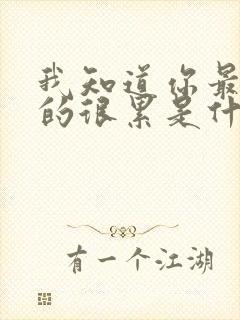 我知道你最
的很累是什
有一个江湖